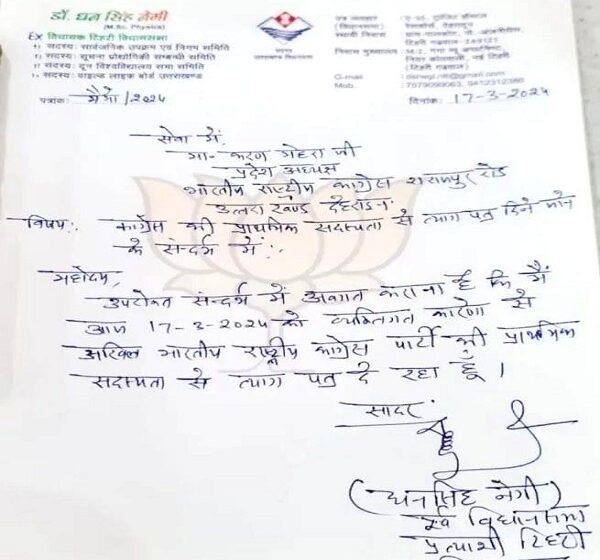 डॉ. धन सिंह नेगी
(M.Sc. Physics)
Ex विधायक टिहरी विधानसभा
१) सदस्य: सार्वजनिक उपक्रम एवं निगम समिति
२) सदस्य: सूचना प्रौद्योगिकी सम्बन्धी समिति
३) सदस्य: दून विश्वविद्यालय सभा समिति
सदस्य: वाइल्ड लाइफ बोर्ड उत्तराखण्ड
पत्र व्यवहार
(विधानसभा)
स्थायी निवास
टिहरी गढ़वाल
निवास मुख्यालय
(टिहरी गढ़वाल)
G-mail
Mob. 9412312380
पत्रांक: मैमो/2024
दिनांक: 17-3-2024
सेवा में,
मा० करण माहरा जी
प्रदेश अध्यक्ष
भारतीय राष्ट्रीय कांग्रेस राजपुर रोड
उत्तराखण्ड देहरादून
विषय:- कांग्रेस की प्राथमिक सदस्यता से त्याग पत्र दिने जाने
के सन्दर्भ में:-
महोदय,
उपरोक्त सन्दर्भ में अवगत कराना है कि मैं
आज 17-3-2024 को व्यक्तिगत कारणो से
अखिल भारतीय राष्ट्रीय कांग्रेस पार्टी की प्राथमिक
सदस्यता से त्याग पत्र दे रहा हूँ।
सादर
(धनसिंह नेगी)
पूर्व विधानसभा
प्रत्याशी टिहरी